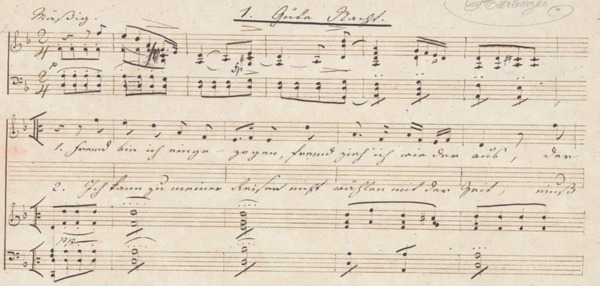 Mäßig.
1. Gute Nacht.
1. Fremd bin ich einge- zogen, fremd zieh' ich wieder aus, der
2. Ich kann zu meiner Reisen nicht wählen mit der Zeit, muß